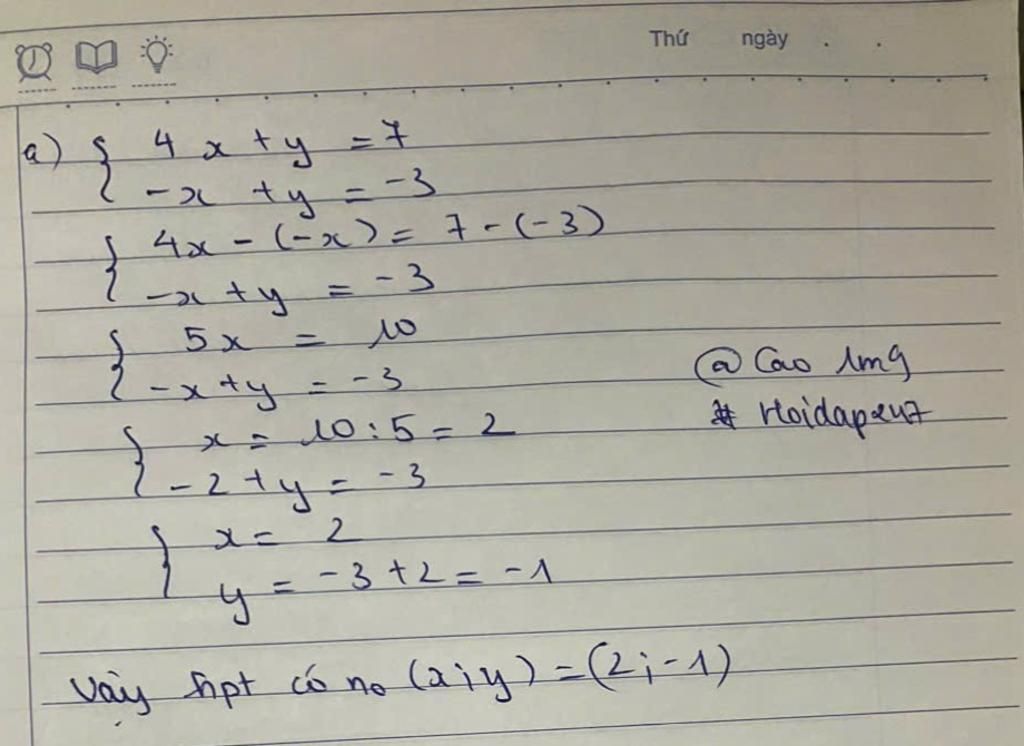 Thứ ngày . .
a) { 4x + y = 7
-x + y = -3
{ 4x - (-x) = 7 - (-3)
-x + y = -3
{ 5x = 10
-x + y = -3
@ Cao 1mg
# Hoidap247
{ x = 10 : 5 = 2
-2 + y = -3
{ x = 2
y = -3 + 2 = -1
Vậy hpt có no (x;y) = (2;-1)